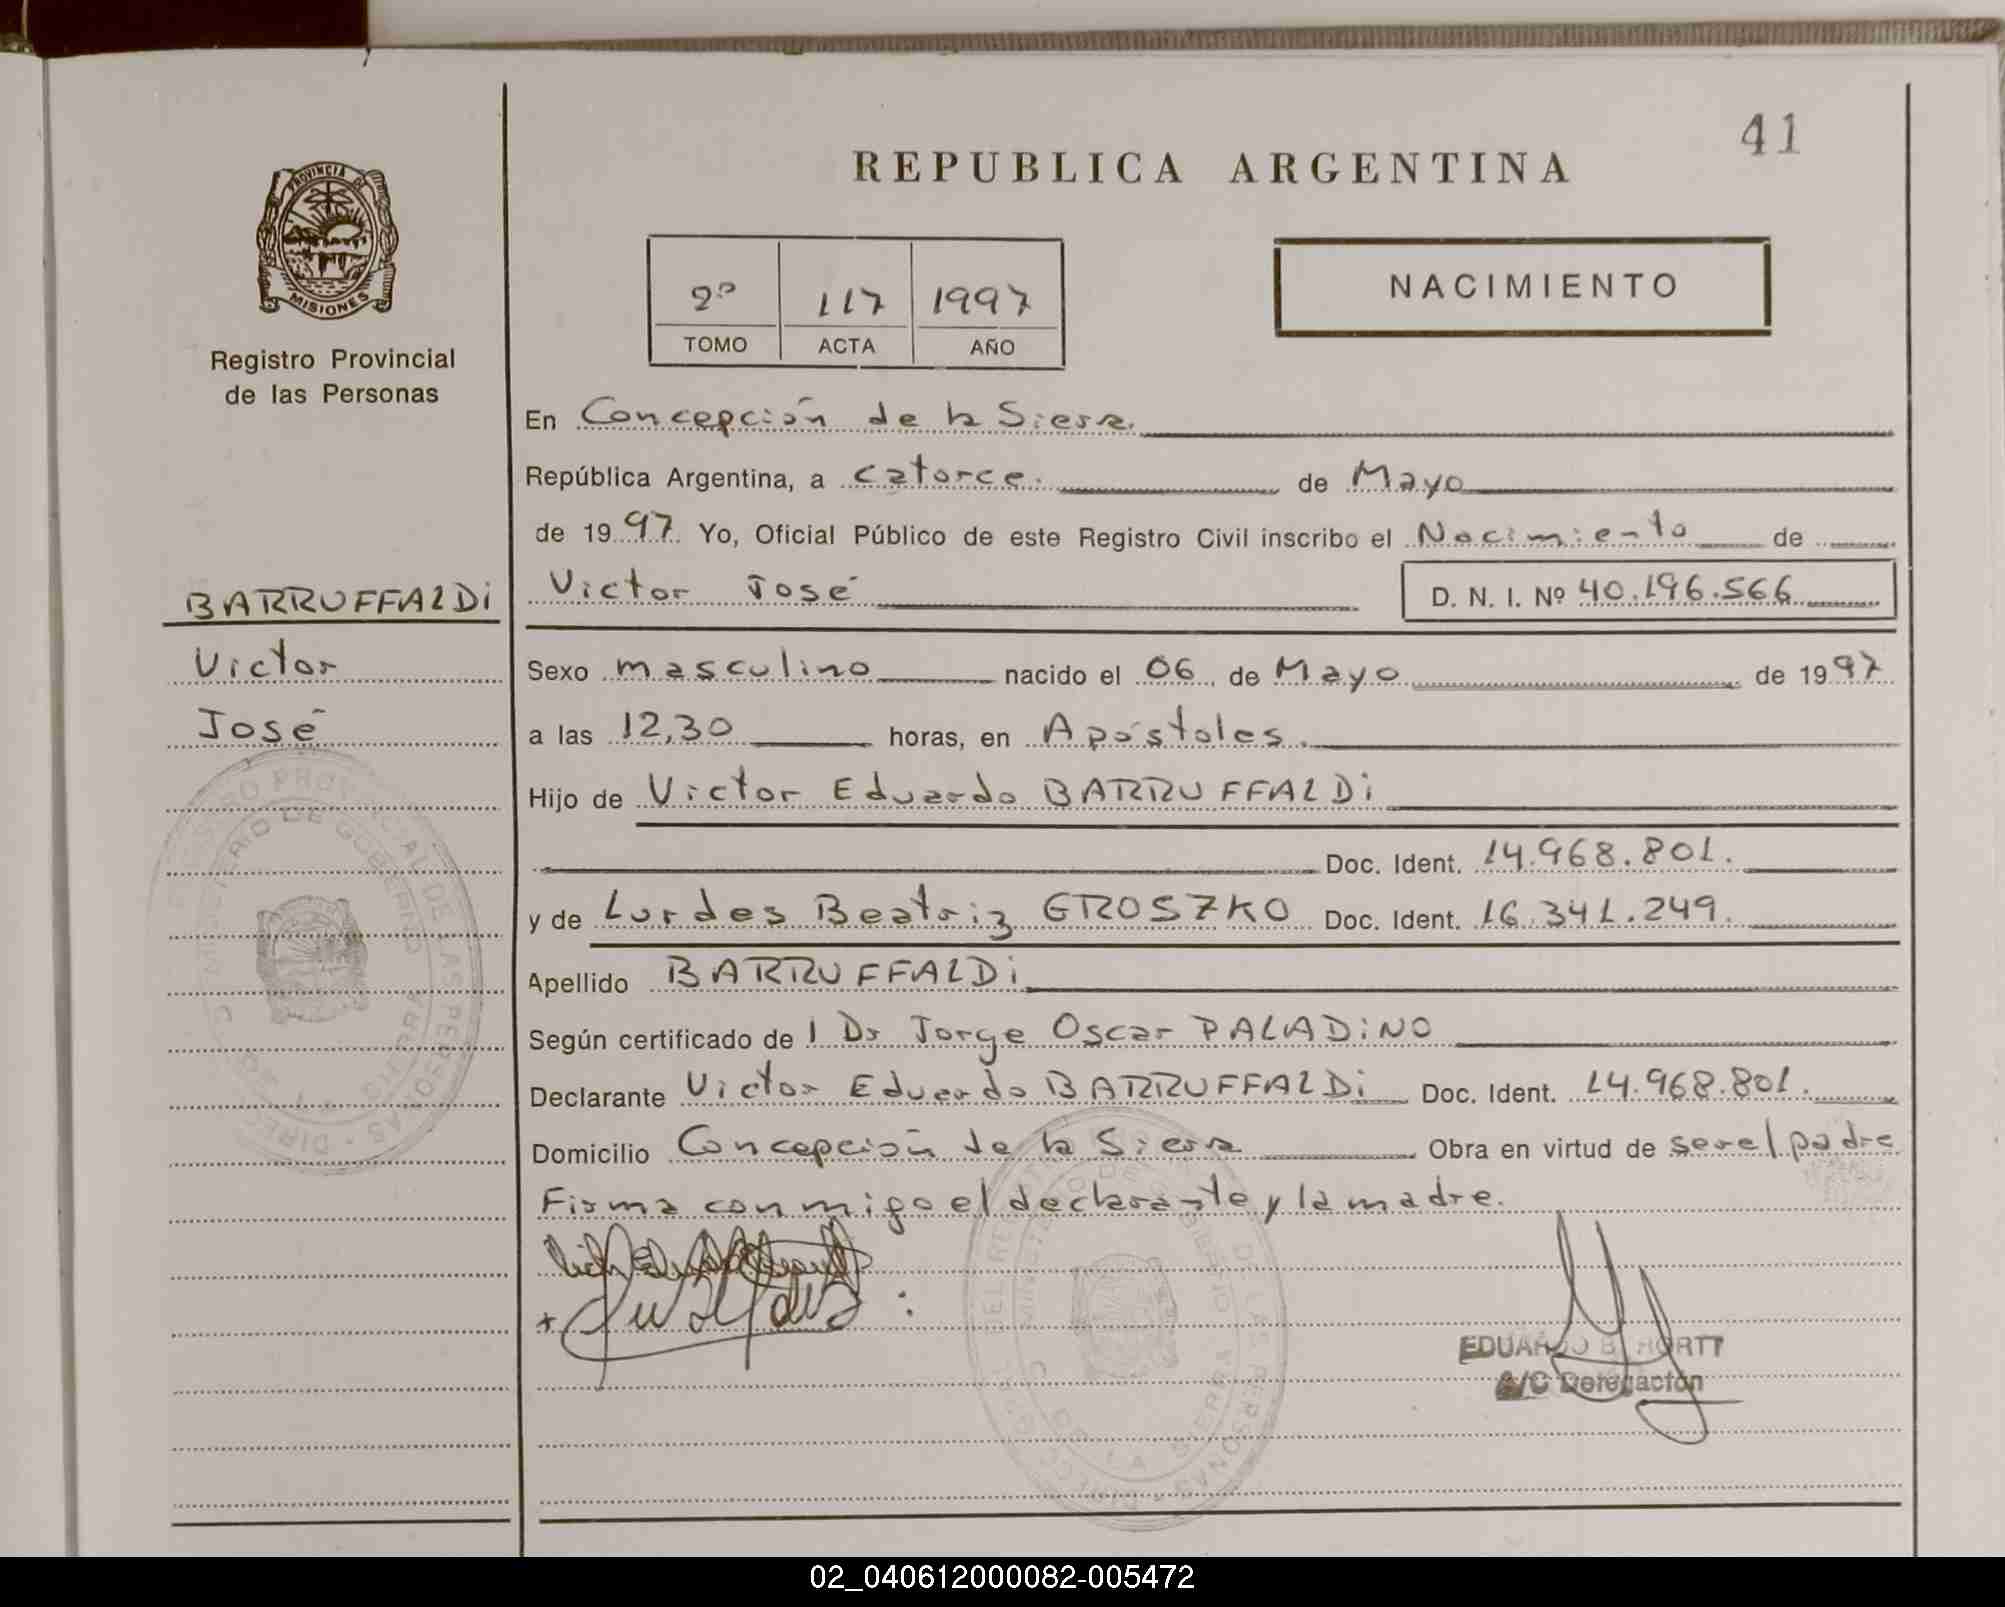 41
REPUBLICA ARGENTINA
PROVINCIA DE
MISIONES
Registro Provincial
de las Personas
2º 117 1997
TOMO ACTA AÑO
NACIMIENTO
En Concepción de la Sierra.
República Argentina, a catorce. de Mayo
de 1997 Yo, Oficial Público de este Registro Civil inscribo el Nacimiento de
BARRUFFALDi
Victor
José
Victor José D. N. I. Nº 40.196.566
Sexo masculino nacido el 06 de Mayo de 1997
a las 12,30 horas, en Apóstoles.
Hijo de Victor Eduardo BARRUFFALDi
Doc. Ident. 14.968.801.
y de Lurdes Beatriz GROSZKO Doc. Ident. 16.341.249.
Apellido BARRUFFALDi
Según certificado de l Dr Jorge Oscar PALADiNO
Declarante Victor Eduardo BARRUFFALDi Doc. Ident. 14.968.801.
Domicilio Concepción de la Sierra Obra en virtud de ser el padre
Firma con migo el declarante y la madre.
EDUARDO B. HORTT
A/C Delegación
02_040612000082-005472